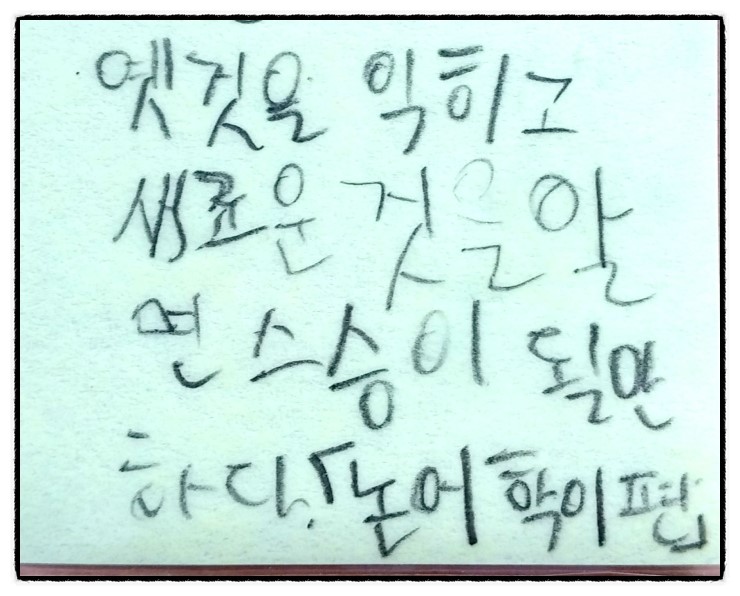 옛것을 익히고
새료운 것을 알
면 스승이 될만
하다.「논어 학이편」